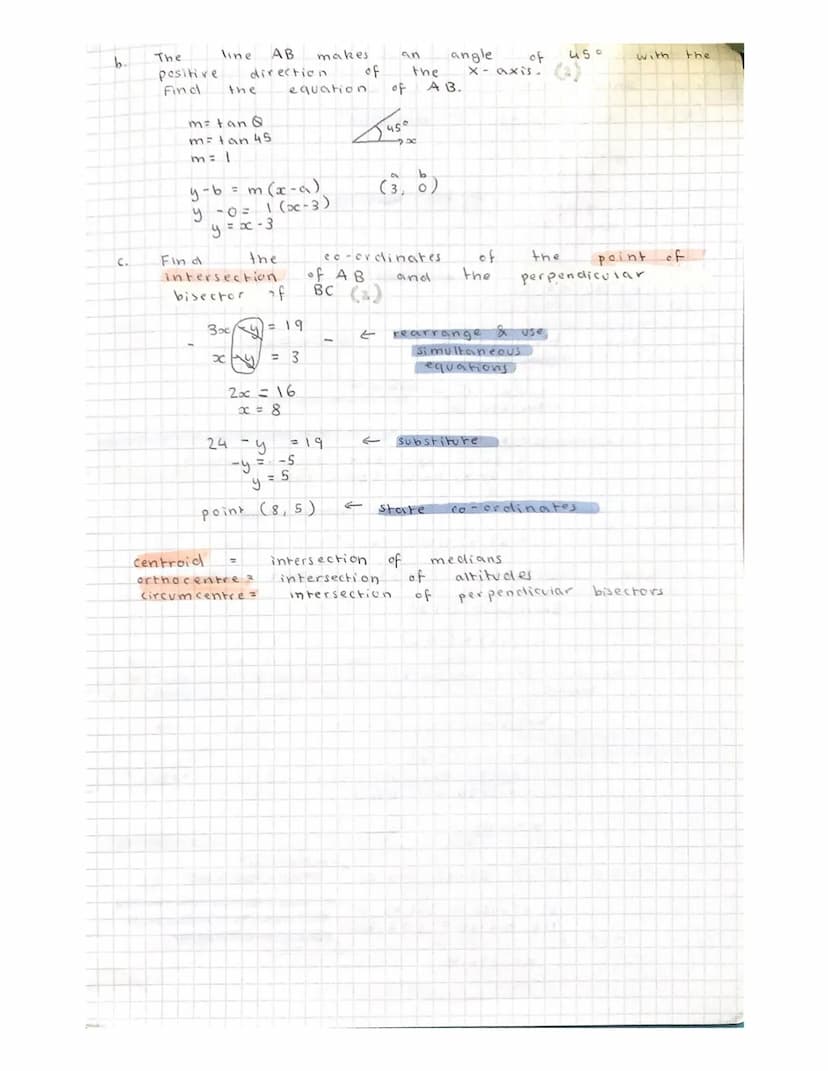 b. The line AB makes an angle of 45° with the
positive direction of the x-axis. (2)
Find the equation of AB.
m = tan θ
m = tan 45
m = 1
45°
x
y - b = m(x - a)
a b
(3, 0)
y - 0 = 1(x - 3)
y = x - 3
c. Find the co-ordinates of the point of
intersection of AB and the perpendicular
bisector of BC (2)
3x - y = 19
- x - y = 3 -
← rearrange & use
simultaneous
equations
2x = 16
x = 8
24 - y = 19 ← substitute
-y = -5
y = 5
point (8, 5) ← state co-ordinates
centroid = intersection of medians
orthocentre = intersection of altitudes
circumcentre = intersection of perpendicular bisectors